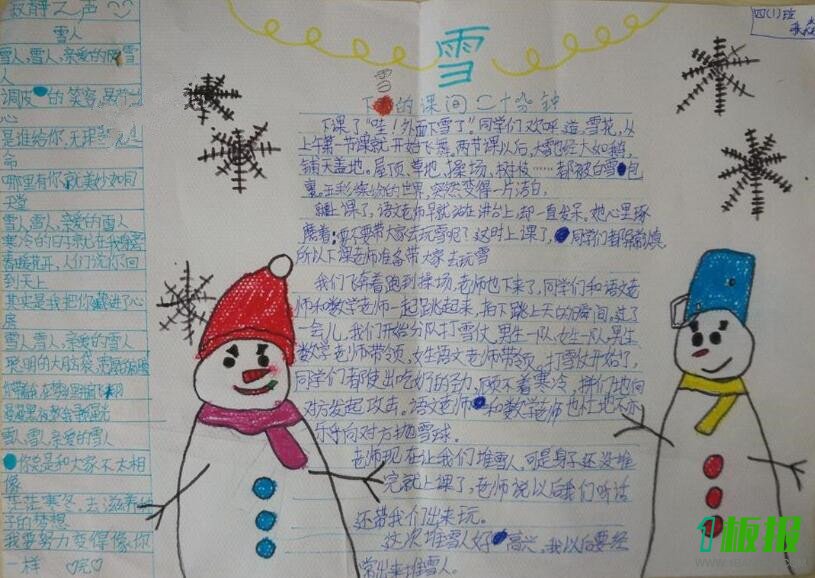 寂静之声
雪人
雪人,雪人,亲爱的雪
人
调皮的笑容,是
心
是谁给你,无
命
哪里有你就美妙如同
天堂
雪人,雪人,亲爱的雪人
寒冷的日子就在我身
春暖花开,人们说你回
到天上
其实是我把你藏进了心
房
雪人,雪人,亲爱的雪人
聪明的大脑袋
雪人,雪人,亲爱的雪人
你总是和大家不太相
像
茫茫寒冬,去滋养种
子的梦想
我要努力变得像你
一样 完
雪
四(1)班
雪
下的课间二十分钟
下课了“哇!外面下雪了”同学们欢呼道,雪花,从
上午第一节课就开始飞舞。两节课以后,大地已大如鹅,
铺天盖地。屋顶、草地、操场、树枝……都被白雪包
裹。五彩缤纷的世界,突然变得一片洁白。
上课了,语文老师早就站在讲台上,却一直发呆。她心里琢
磨着:要不要带大家去玩雪呢?这时上课了,同学们都
所以下课老师准备带大家去玩雪
我们飞奔着跑到操场,老师也下来了,同学们和语文老
师和数学老师一起跳起来,拍下跳上天的瞬间,过了
一会儿,我们开始分队打雪仗,男生一队,女生一队,男生
数学老师带领,女生语文老师带领。打雪仗开始了,
同学们都使出吃奶的劲,顾不着寒冷,拼了地向
对方发起攻击。语文老师和数学老师也忙地不亦
乐乎向对方抛雪球。
老师现在让我们堆雪人,可是身子还没堆
完就上课了,老师说以后我们听话
还带我们出来玩。
这次堆雪人好高兴,我以后要经
常出来堆雪人。
1板报